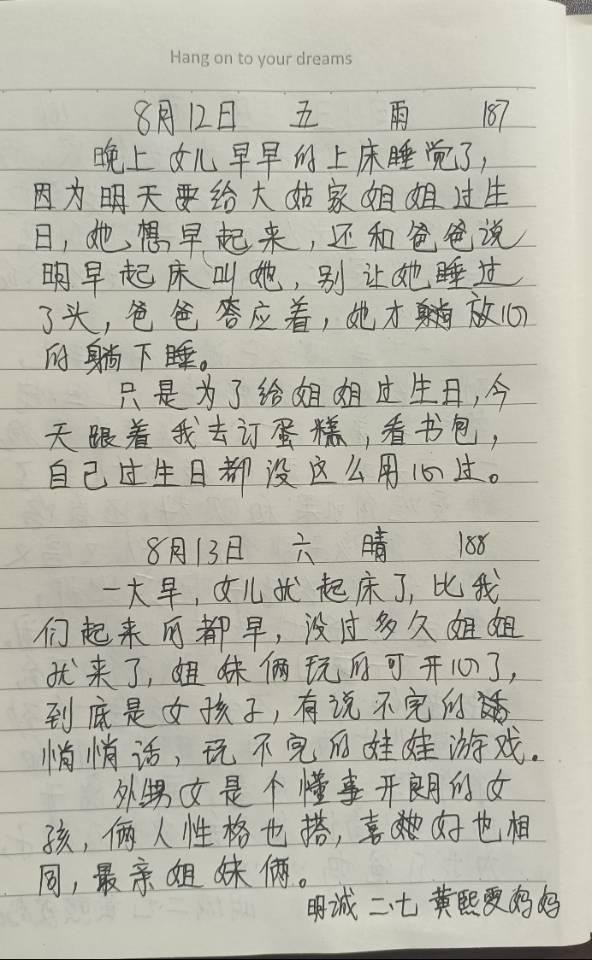 Hang on to your dreams
8月12日 五 雨 187
晚上女儿早早的上床睡觉了，
因为明天要给大姑家姐姐过生
日，她想早起来，还和爸爸说
明早起床叫她，别让她睡过
了头，爸爸答应着，她才躺放心
的躺下睡。
只是为了给姐姐过生日，今
天跟着我去订蛋糕，看书包，
自己过生日都没这么用心过。
8月13日 六 晴 188
一大早，女儿就起床了，比我
们起来的都早，没过多久姐姐
就来了，姐妹俩玩的可开心了，
到底是女孩子，有说不完的话
悄悄话，玩不完的娃娃游戏。
外甥女是个懂事开朗的女
孩，俩人性格也搭，喜好也相
同，最亲姐妹俩。
明诚二.七 黄熙雯妈妈